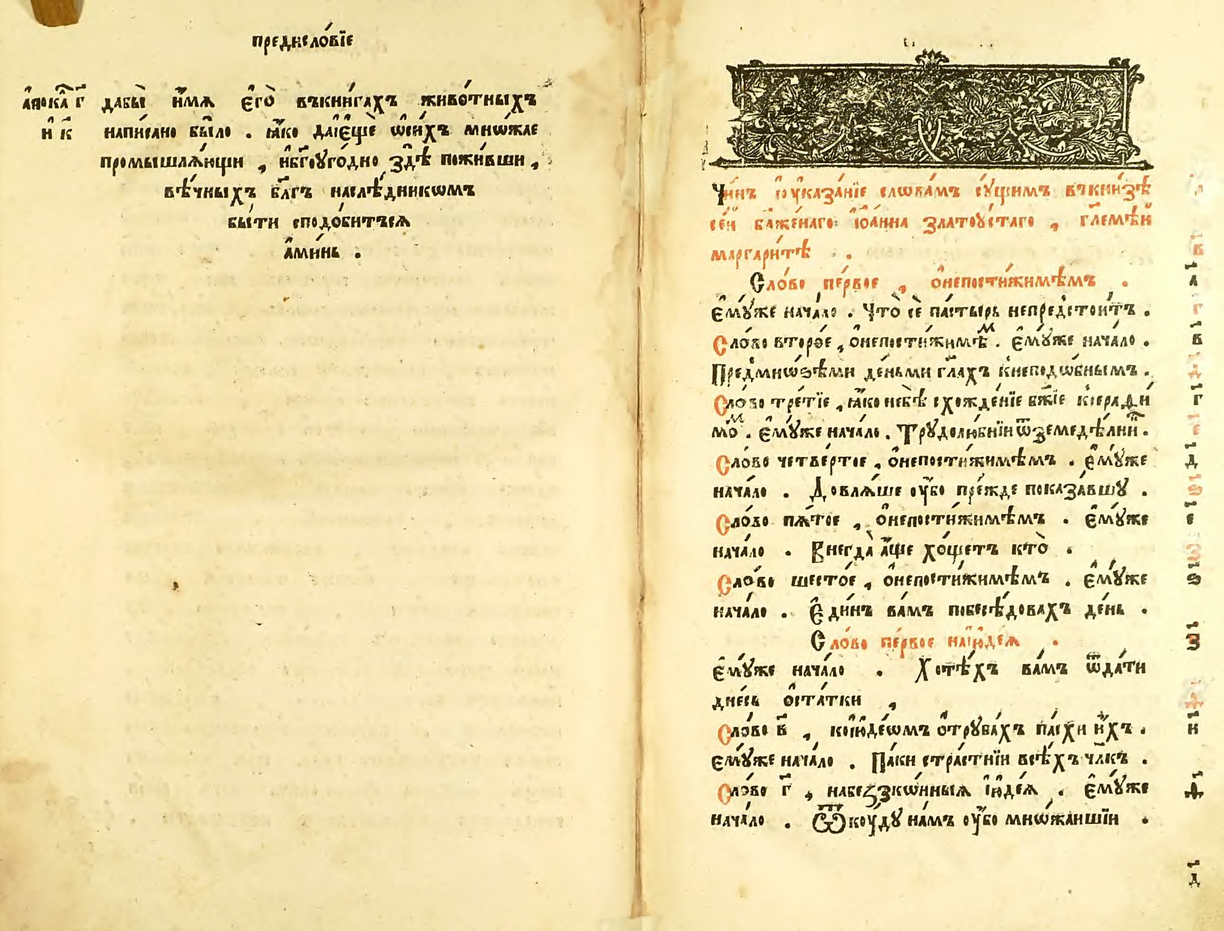 предисло́вїе
а҆пока́ г҃ дабы̀ и҆́мѧ є҆гѡ̀ въкни́гахъ живо́тныхъ
и҆ к҃ напи́сано бы́ло . ꙗ҆́ко да́ющїе ѿси́хъ мнѡ́жае
промышлѧ́ющи , и҆бг҃оуго́дно здѣ̀ пожи́вши ,
вѣ́чныхъ бл҃гъ наслѣ́дникѡмъ
бы́ти сподо́битъсѧ
а҆ми́нь .
Чи́нъ и҆ оу҆каза́нїе словамъ су́щимъ въкни́зѣ
се́й бл҃же́ннаго і҆ѡа́нна златоу́стаго , гл҃емѣй
маргари́тѣ .
Сло́во пе́рвое , ѡ҆непости́жимѣмъ .
є҆му́же нача́ло . Что̀ сѐ па́стырь непредстои́тъ . а҃
Сло́во второ́е , ѡ҆непости́жимѣм . є҆му́же нача́ло . в҃
Пред̾мно́зѣми де́ньми гл҃ахъ кнеподѡ́бнымъ .
Сло́во тре́тїе , ꙗ҆́ко небѣ̀ схожде́нїе бж҃їе ксерафи г҃
мо́м . є҆му́же нача́ло . Трудолю́бнїи ѿземедѣ́лнїи .
Сло́во четве́ртое , ѡ҆непости́жимѣмъ . є҆му́же д҃
нача́ло . Довлѧ́ше оу҆́бо пре́жде показа́вшу .
Сло́во пѧ́тое , ѡ҆непости́жимѣмъ . є҆му́же є҃
нача́ло . Внегда̀ а҆́ще хо́щетъ кто̀ .
Сло́во шесто́е , ѡ҆непости́жимѣмъ . є҆му́же ѕ҃
нача́ло . Є҆ди́нъ ва́мъ побесѣ́довахъ де́нь .
Сло́во пе́рвое наі҆юде́ѧ . з҃
є҆му́же нача́ло . Хотѣ́хъ ва́мъ ѿда́ти
дне́сь ѡ҆ста́тки ,
Сло́во в҃ , коі҆юде́ѡмъ ѡ҆ тру́бахъ па́схи и҆́хъ . и҃
є҆му́же нача́ло . Па́ки стра́стнїи всѣ́хъ чл҃къ .
Сло́во г҃ , набеззако́нныѧ і҆юде́ѧ . є҆му́же ѳ҃
нача́ло . Ѿкоу́ду на́мъ оу҆́бо мнѡ́жаишїи .
д҃